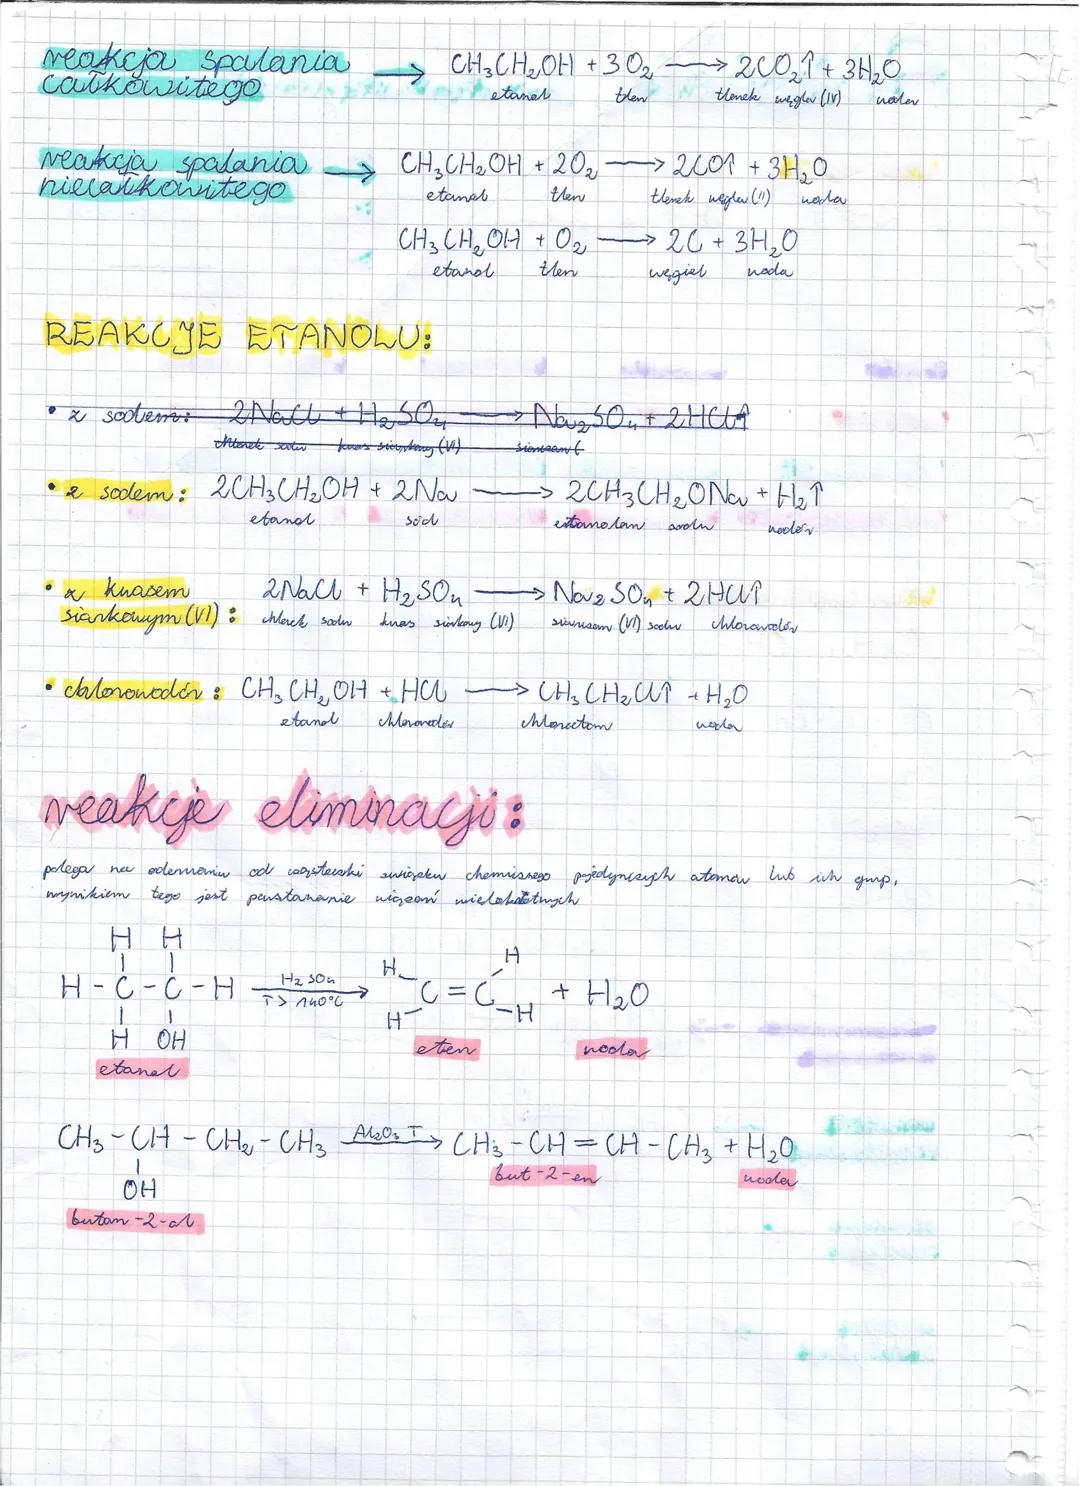 reakcja spalania
całkowitego → CH₃CH₂OH + 3O₂ → 2CO₂↑ + 3H₂O
etanol tlen tlenek węgla (IV) woda
reakcja spalania
niecałkowitego → CH₃CH₂OH + 2O₂ → 2CO↑ + 3H₂O
etanol tlen tlenek węgla (II) woda
CH₃CH₂OH + O₂ → 2C + 3H₂O
etanol tlen węgiel woda
REAKCJE ETANOLU:
• z sodem: 2NaCl + H₂SO₄ → Na₂SO₄ + 2HCl↑
chlorek sodu kwas siarkowy (VI) siarczan (
• z sodem: 2CH₃CH₂OH + 2Na → 2CH₃CH₂ONa + H₂↑
etanol sód etanolan sodu wodór
• z kwasem
siarkowym (VI): 2NaCl + H₂SO₄ → Na₂SO₄ + 2HCl↑
chlorek sodu kwas siarkowy (VI) siarczan (VI) sodu chlorowodór
• chlorowodór: CH₃CH₂OH + HCl → CH₃CH₂Cl↑ + H₂O
etanol chlorowodór chloroetan woda
reakcje eliminacji:
polega na oderwaniu od cząsteczki związku chemicznego pojedynczych atomów lub ich grup,
wynikiem tego jest powstawanie wiązań wielokrotnych
H H
H - C - C - H H₂SO₄ T > 140°C → H H C = C H H + H₂O
H OH
eten woda
etanol
CH₃ - CH - CH₂ - CH₃ Al₂O₃ T → CH₃ - CH = CH - CH₃ + H₂O
OH but-2-en woda
butan-2-ol